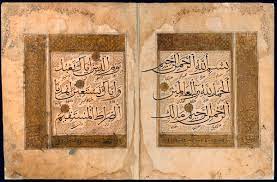 بسم الله الرحمن الرحيم
الحمد لله رب العالمين
الرحمن الرحيم ملك
يوم الدين اياك نعبد
واياك نستعين اهدنا
الصراط المستقيم